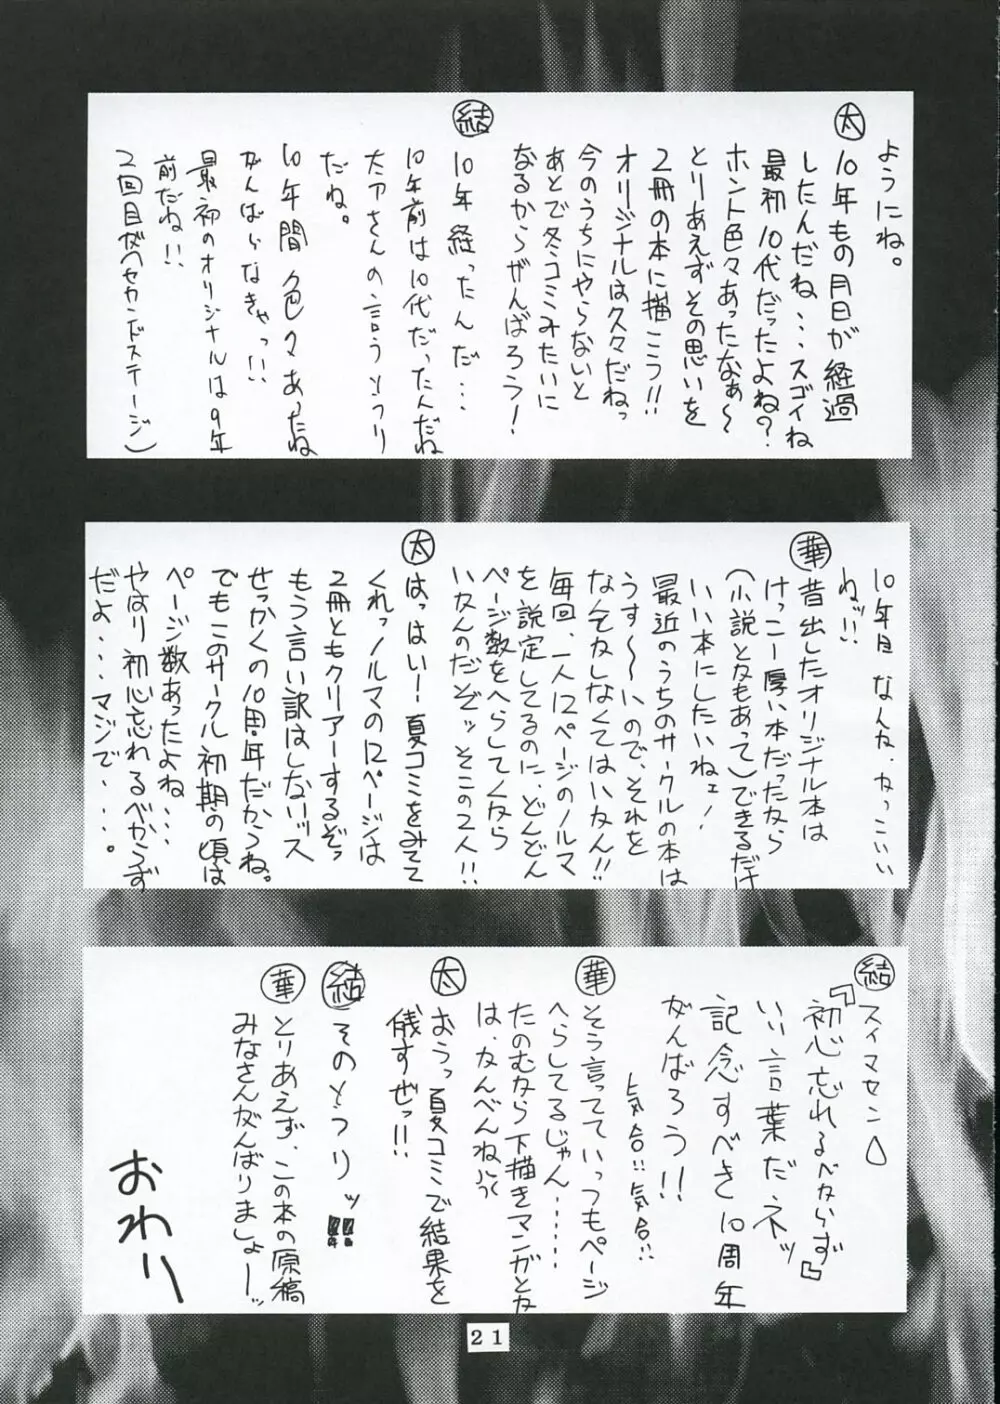 ようにね。
太
10年もの月日が経過
したんだね、、、スゴイね
最初10代だったよね?
ホント色々あったなぁ〜
とりあえずその思いを
2冊の本に描こう!!
オリジナルは久々だねっ
今のうちにやらないと
あとで冬コミみたいに
なるからがんばろう!
結
10年経ったんだ・・・
10年前は10代だったんだね
太アさんの言うとうり
だね。
10年間色々あったね
がんばらなきゃっ!!
最初のオリジナルは9年
前だね!!
2回目がへセカンドステージ)
10年目なんな、なっこいい
ねッ!!
華
昔出したオリジナル本は
けっこー厚い本だったなら
(小説となもあって)できるだけ
いい本にしたいねェ!
最近のうちのサークルの本は
うす〜〜いので、それを
なんとなしなくてはいなん!!
毎回、一人12ページのノルマ
を説定してるのに、どんどん
ページ数をへらしてくなら
いなんのだぞッそこの2人!!
太
はっはい!夏コミをみてて
くれっノルマの12ページは
2冊ともクリアーするぞっ
もう言い訳はしないッス
せっかくの10周年だからね。
でもこのサークル初期の頃は
ページ数あったよね、、、
やはり初心忘れるべからず
だよ・・・マジで・・・。
結
スイマセン
『初心忘れるべならず』
いい言葉だネッ
記念すべき10周年
がんばろう!!
気合!!気合!!
華
そう言っていっつもページ
へらしてるじゃん・・・・・・
たのむなら下描きマンガとな
は、なんべんね
太
おうっ夏コミで結果を
残すぜっ!!
結
そのとうりッ!!
華
とりあえず、この本の原稿
みなさんがんばりましょーッ
おわり
21